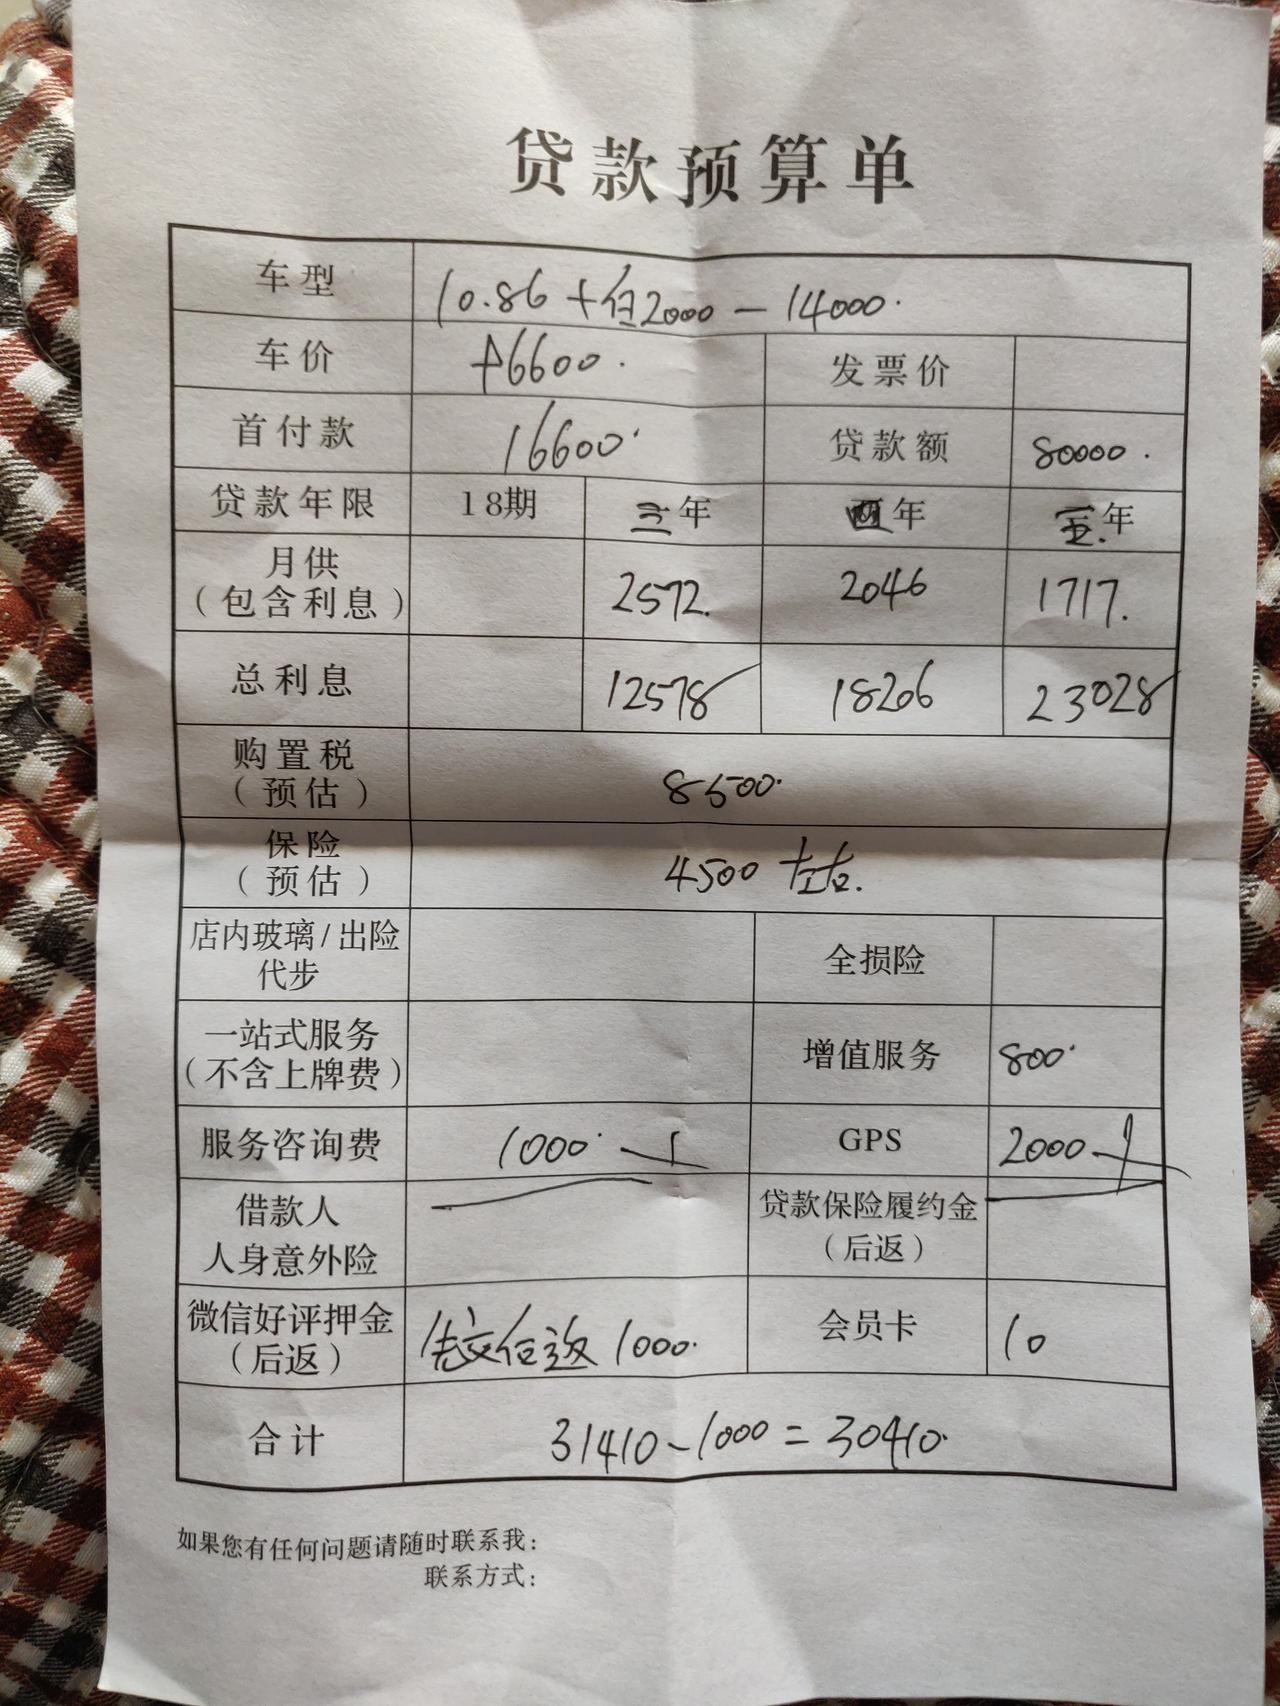 贷款预算单
车型 10.86+白2000-14000.
车价 96600. 发票价
首付款 16600. 贷款额 80000.
贷款年限 18期 三年 年 五.年
月供 2572. 2046 1717.
(包含利息)
总利息 12578 18206 23028
购置税 8500.
(预估)
保险 4500左右.
(预估)
店内玻璃/出险 全损险
代步
一站式服务 增值服务 800.
(不含上牌费)
服务咨询费 1000. GPS 2000
借款人 贷款保险履约金
人身意外险 (后返)
微信好评押金 1000. 会员卡 10
(后返)
合计 31410-1000=30410.
如果您有任何问题请随时联系我:
联系方式: